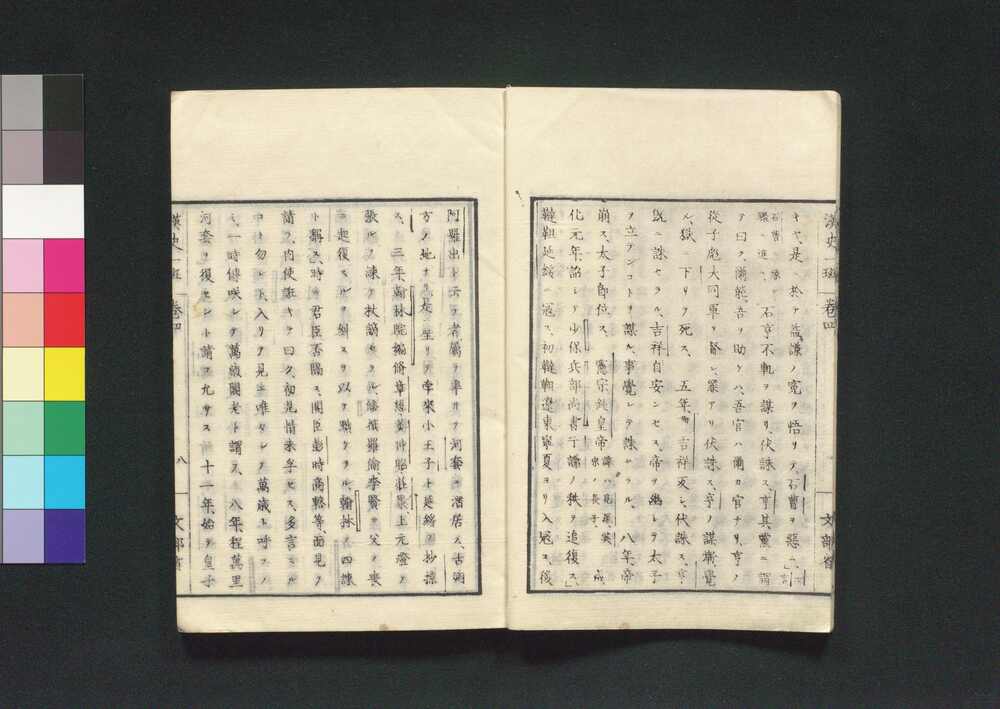 漢史一班 卷四
キヤ、是ニ於テ益謙ノ寃ヲ悟リテ、石曹ヲ惡ム、
石亨不軌ヲ謀リ伏誅ス、亨其黨ニ謂
ヲ曰ク、爾能吾ヲ助ケハ、吾官ハ爾カ官ナリ、亨ノ
從子彪大同軍ヲ督シ、罪アリ伏誅ス、亨ノ謀漸覺
ル、獄ニ下リテ死ス、五年、曹吉祥反シ伏誅ス、亨
既ニ誅セラル、吉祥自安ンセス、帝ヲ幽シテ太子
ヲ立テンコトヲ謀ル、事覺レテ誅セラル、八年、帝
崩ス、太子即位ス、憲宗純皇帝 成
化元年、詔シテ少保兵部尚書于謙ノ秩ヲ追復ス、
韃靼延綏ニ寇ス、初韃靼遼東寧夏ヨリ入寇ス、後
阿羅出ト云フ者、屬ヲ率ヰテ河套ニ潛居ス、古朔
方ノ地ナリ、是ニ至リテ孛來小王子ト延綏ヲ抄掠
ス、三年、翰林院編修章懋黃仲昭莊㫤、上元燈ヲ
張ルヲ諫メ、杖謫セラル、修撰羅倫、李賢カ父ノ喪
ニ起復スルヲ糾スヲ以テ黜ケラル、翰林ノ四諫
ト稱ス、時ニ君臣否隔ス、閣臣彭時商輅等、面見ヲ
請フ、内使班キテ曰ク、初見情未孚セス、多言スル
コト勿レト、入リテ見ユ、唯々シテ萬歲ト呼フノ
ミ、一時傳咲シテ萬歲閣老ト謂フ、八年、程萬里
河套ヲ復セント請フ、允サス、十一年、始テ皇子
漢史一班 卷四 八 文部省